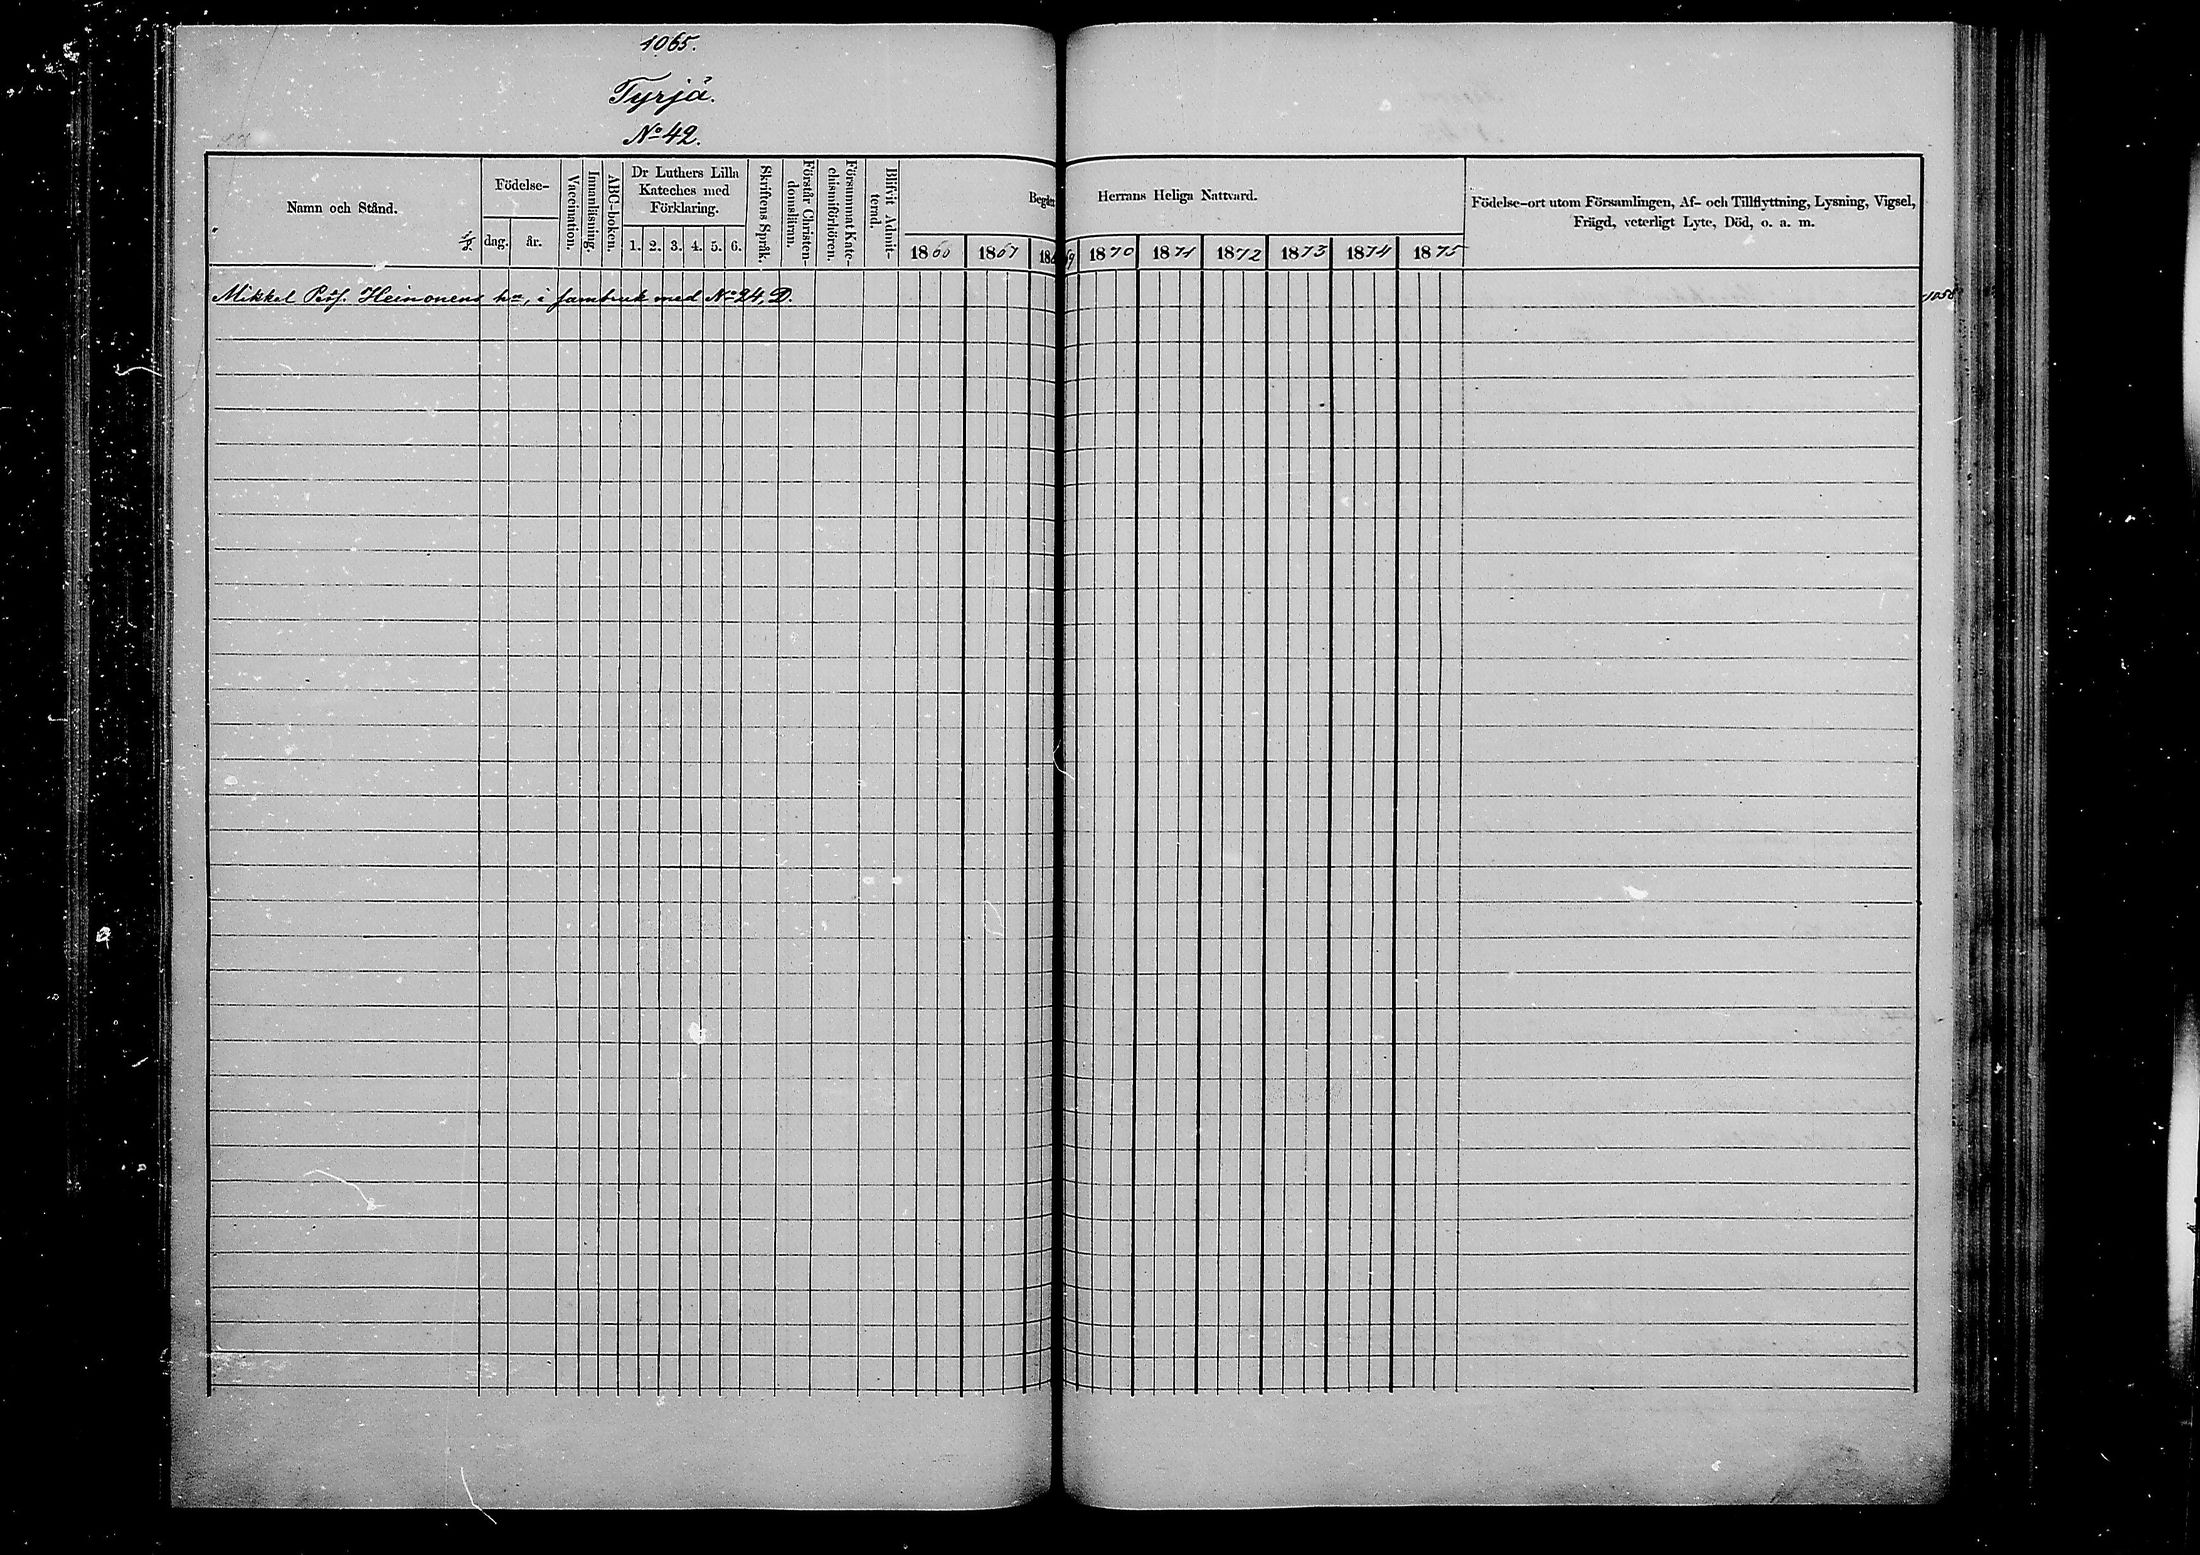 1065.
Tyrjä.
No 42.
Namn och Stånd.
Födelse-
dag.
år.
Vaccination.
Innanläsning.
ABC-boken.
Dr Luthers Lilla
Kateches med
Förklaring.
1. 2. 3. 4. 5. 6.
Skriftens Språk.
Förstår Christen-
domsläran.
Försummat Kate-
chismiförhören.
Blifvit Admit-
terad.
Begår
Herrans Heliga Nattvard.
1866 1867 186 69 1870 1871 1872 1873 1874 1875
Födelse-ort utom Församlingen, Af- och Tillflyttning, Lysning, Vigsel,
Frägd, veterligt Lyte, Död, o. a. m.
Mikkel Heinonens hn, i sambruk med No 24, D.
1058